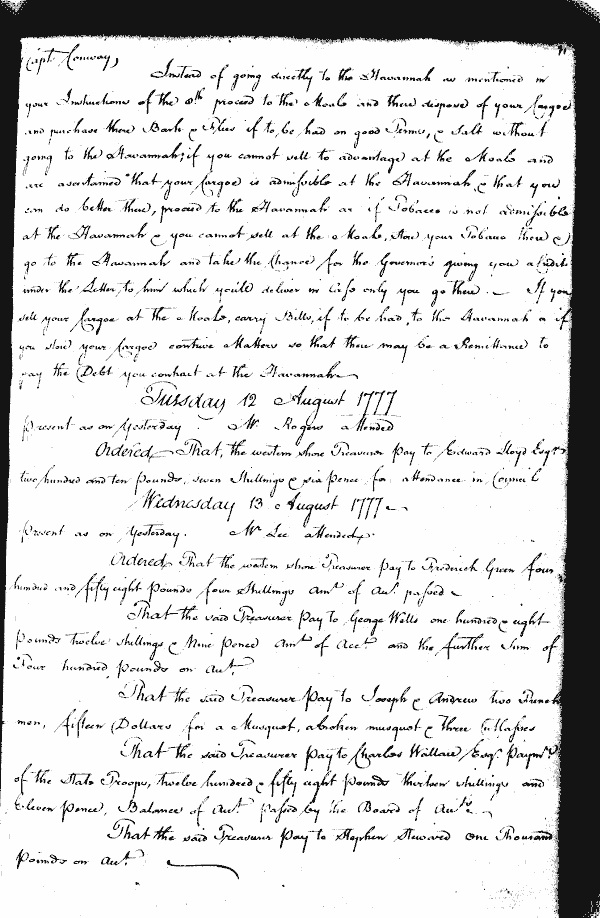 Capt Conway,
Instead of going directly to the Havannah as mentioned in
your Instructions of the 8th proceed to the Moale and there dispose of your Cargoe
and purchase there Bark & Flies if to be had on good Terms, & Salt without
going to the Havannah; if you cannot sell to advantage at the Moale and
are ascertained that your Cargoe is admissible at the Havannah & that you
can do better there, proceed to the Havannah or if Tobacco is not admissible
at the Havannah & you cannot sell at the Moale, Stow your Tobacco there &
go to the Havannah and take the Chance for the Governor's giving you a Credit
under the Letter to him which you'll deliver in Case only you go there. If you
sell your Cargoe at the Moale, carry Bills, if to be had, to the Havannah or if
you stow your Cargoe contrive Matters so that there may be a Remittance to
pay the Debt you contract at the Havannah
Tuesday 12 August 1777
Present as on Yesterday. Mr Rogers attended
Ordered That, the western shore Treasurer pay to Edward Lloyd Esqr.
two hundred and ten Pounds, seven Shillings & six pence for attendance in Council
Wednesday 13 August 1777
Present as on Yesterday. Mr Lee attended
Ordered That the western shore Treasurer Pay to Frederick Green four
hundred and fifty eight Pounds four Shillings Amt of Act passed
That the said Treasurer Pay to George Wells one hundred & eight
Pounds twelve shillings & Nine Pence Amt of Acct and the further Sum of
Four hundred Pounds on Act
That the said Treasurer Pay to Joseph & Andrew two French
men, fifteen Dollars for a Musquet, a broken musquet & three Cutlasses
That the said Treasurer Pay to Charles Wallace, Esqr Paymr
of the State Troops, twelve hundred & fifty eight pounds thirteen shillings and
Eleven Pence, Balance of Act passed by the Board of Auds
That the said Treasurer Pay to Stephen Steward one Thousand
Pounds on Act